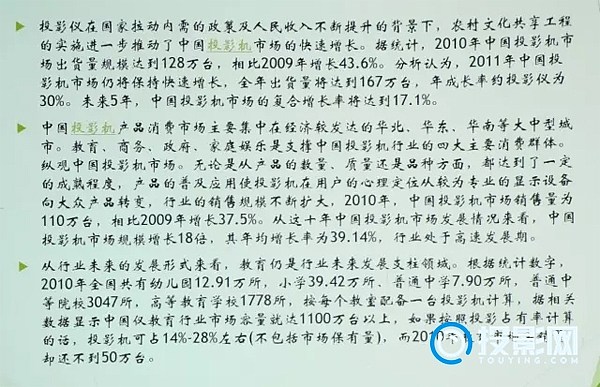 投影仪在国家拉动内需的政策及人民收入不断提升的背景下，农村文化共享工程
的实施进一步推动了中国投影机市场的快速增长。据统计，2010年中国投影机市
场出货量规模达到128万台，相比2009年增长43.6%。分析认为，2011年中国投
影机市场仍将保持快速增长，全年出货量将达到167万台，年成长率约投影仪为
30%。未来5年，中国投影机市场的复合增长率将达到17.1%。
中国投影机产品消费市场主要集中在经济较发达的华北、华东、华南等大中型城
市。教育、商务、政府、家庭娱乐是支撑中国投影机行业的四大主要消费群体。
纵观中国投影机市场。无论是从产品的数量、质量还是品种方面，都达到了一定
的成熟程度，产品的普及应用使投影机在用户的心理定位从较为专业的显示设备
向大众产品转变，行业的销售规模不断扩大，2010年，中国投影机市场销售量为
110万台，相比2009年增长37.5%。从这十年中国投影机市场发展情况来看，中国
投影机市场规模增长18倍，其年均增长率为39.14%，行业处于高速发展期。
从行业未来的发展形式来看，教育仍是行业未来发展支柱领域。根据统计数字，
2010年全国共有幼儿园12.91万所，小学39.42万所、普通中学7.90万所，普通中
等院校3047所，高等教育学校1778所，按每个教室配备一台投影机计算，据相关
数据显示中国仅教育行业市场容量就达1100万台以上，如果按照投影占有率计算
的话，投影机可占14%-28%左右(不包括市场保有量)，而2010年
却还不到50万台。
投影网
TOUYING.COM